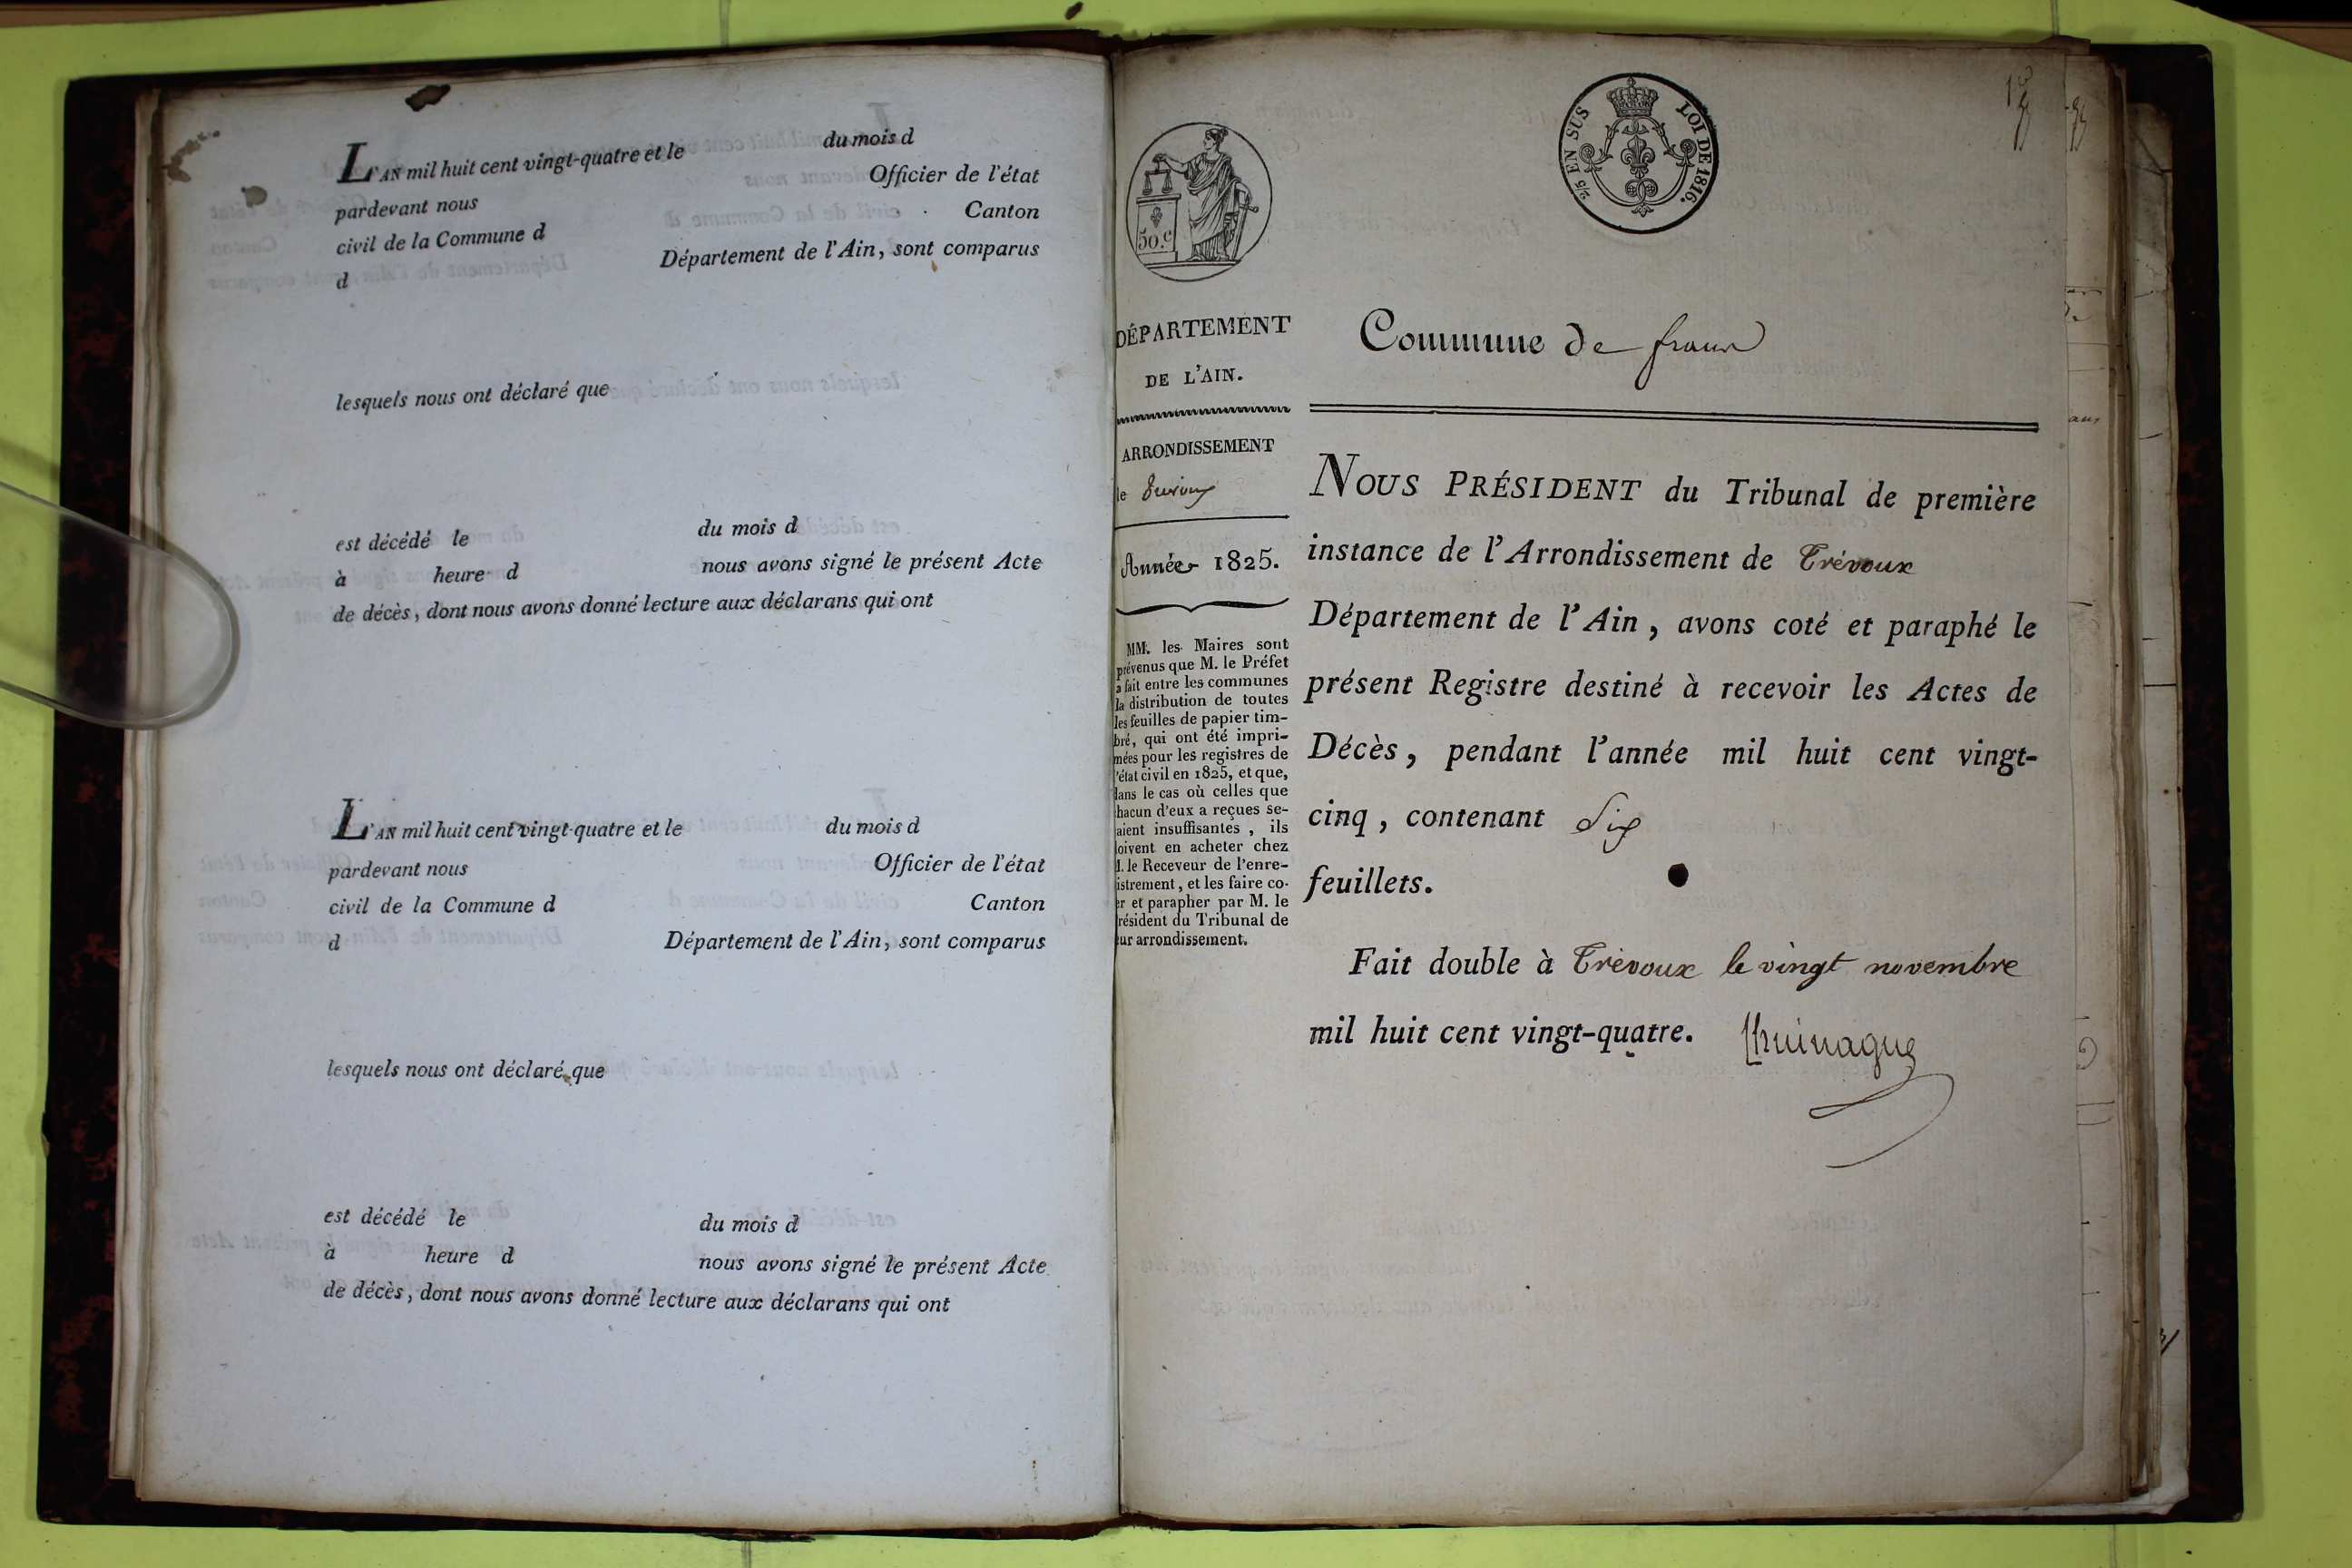 L'AN mil huit cent vingt-quatre et le du mois d
pardevant nous Officier de l'état
civil de la Commune d Canton
d Département de l'Ain, sont comparus
lesquels nous ont déclaré que
est décédé le du mois d
à heure d nous avons signé le présent Acte
de décès, dont nous avons donné lecture aux déclarans qui ont
L'AN mil huit cent vingt-quatre et le du mois d
pardevant nous Officier de l'état
civil de la Commune d Canton
d Département de l'Ain, sont comparus
lesquels nous ont déclaré que
est décédé le du mois d
à heure d nous avons signé le présent Acte
de décès, dont nous avons donné lecture aux déclarans qui ont
50.c
2/5 EN SUS LOI DE 1816.
DÉPARTEMENT
DE L'AIN.
ARRONDISSEMENT
Année 1825.
MM. les Maires sont
prévenus que M. le Préfet
a fait entre les communes
la distribution de toutes
les feuilles de papier tim-
bré, qui ont été impri-
mées pour les registres de
l'état civil en 1825, et que,
dans le cas où celles que
hacun d'eux a reçues se-
aient insuffisantes, ils
oivent en acheter chez
M. le Receveur de l'enre-
istrement, et les faire co-
er et parapher par M. le
résident du Tribunal de
ur arrondissement.
Commune de frans
NOUS PRÉSIDENT du Tribunal de première
instance de l'Arrondissement de Trévoux
Département de l'Ain, avons coté et paraphé le
présent Registre destiné à recevoir les Actes de
Décès, pendant l'année mil huit cent vingt-
cinq, contenant Six
feuillets.
Fait double à Trévoux le vingt novembre
mil huit cent vingt-quatre.